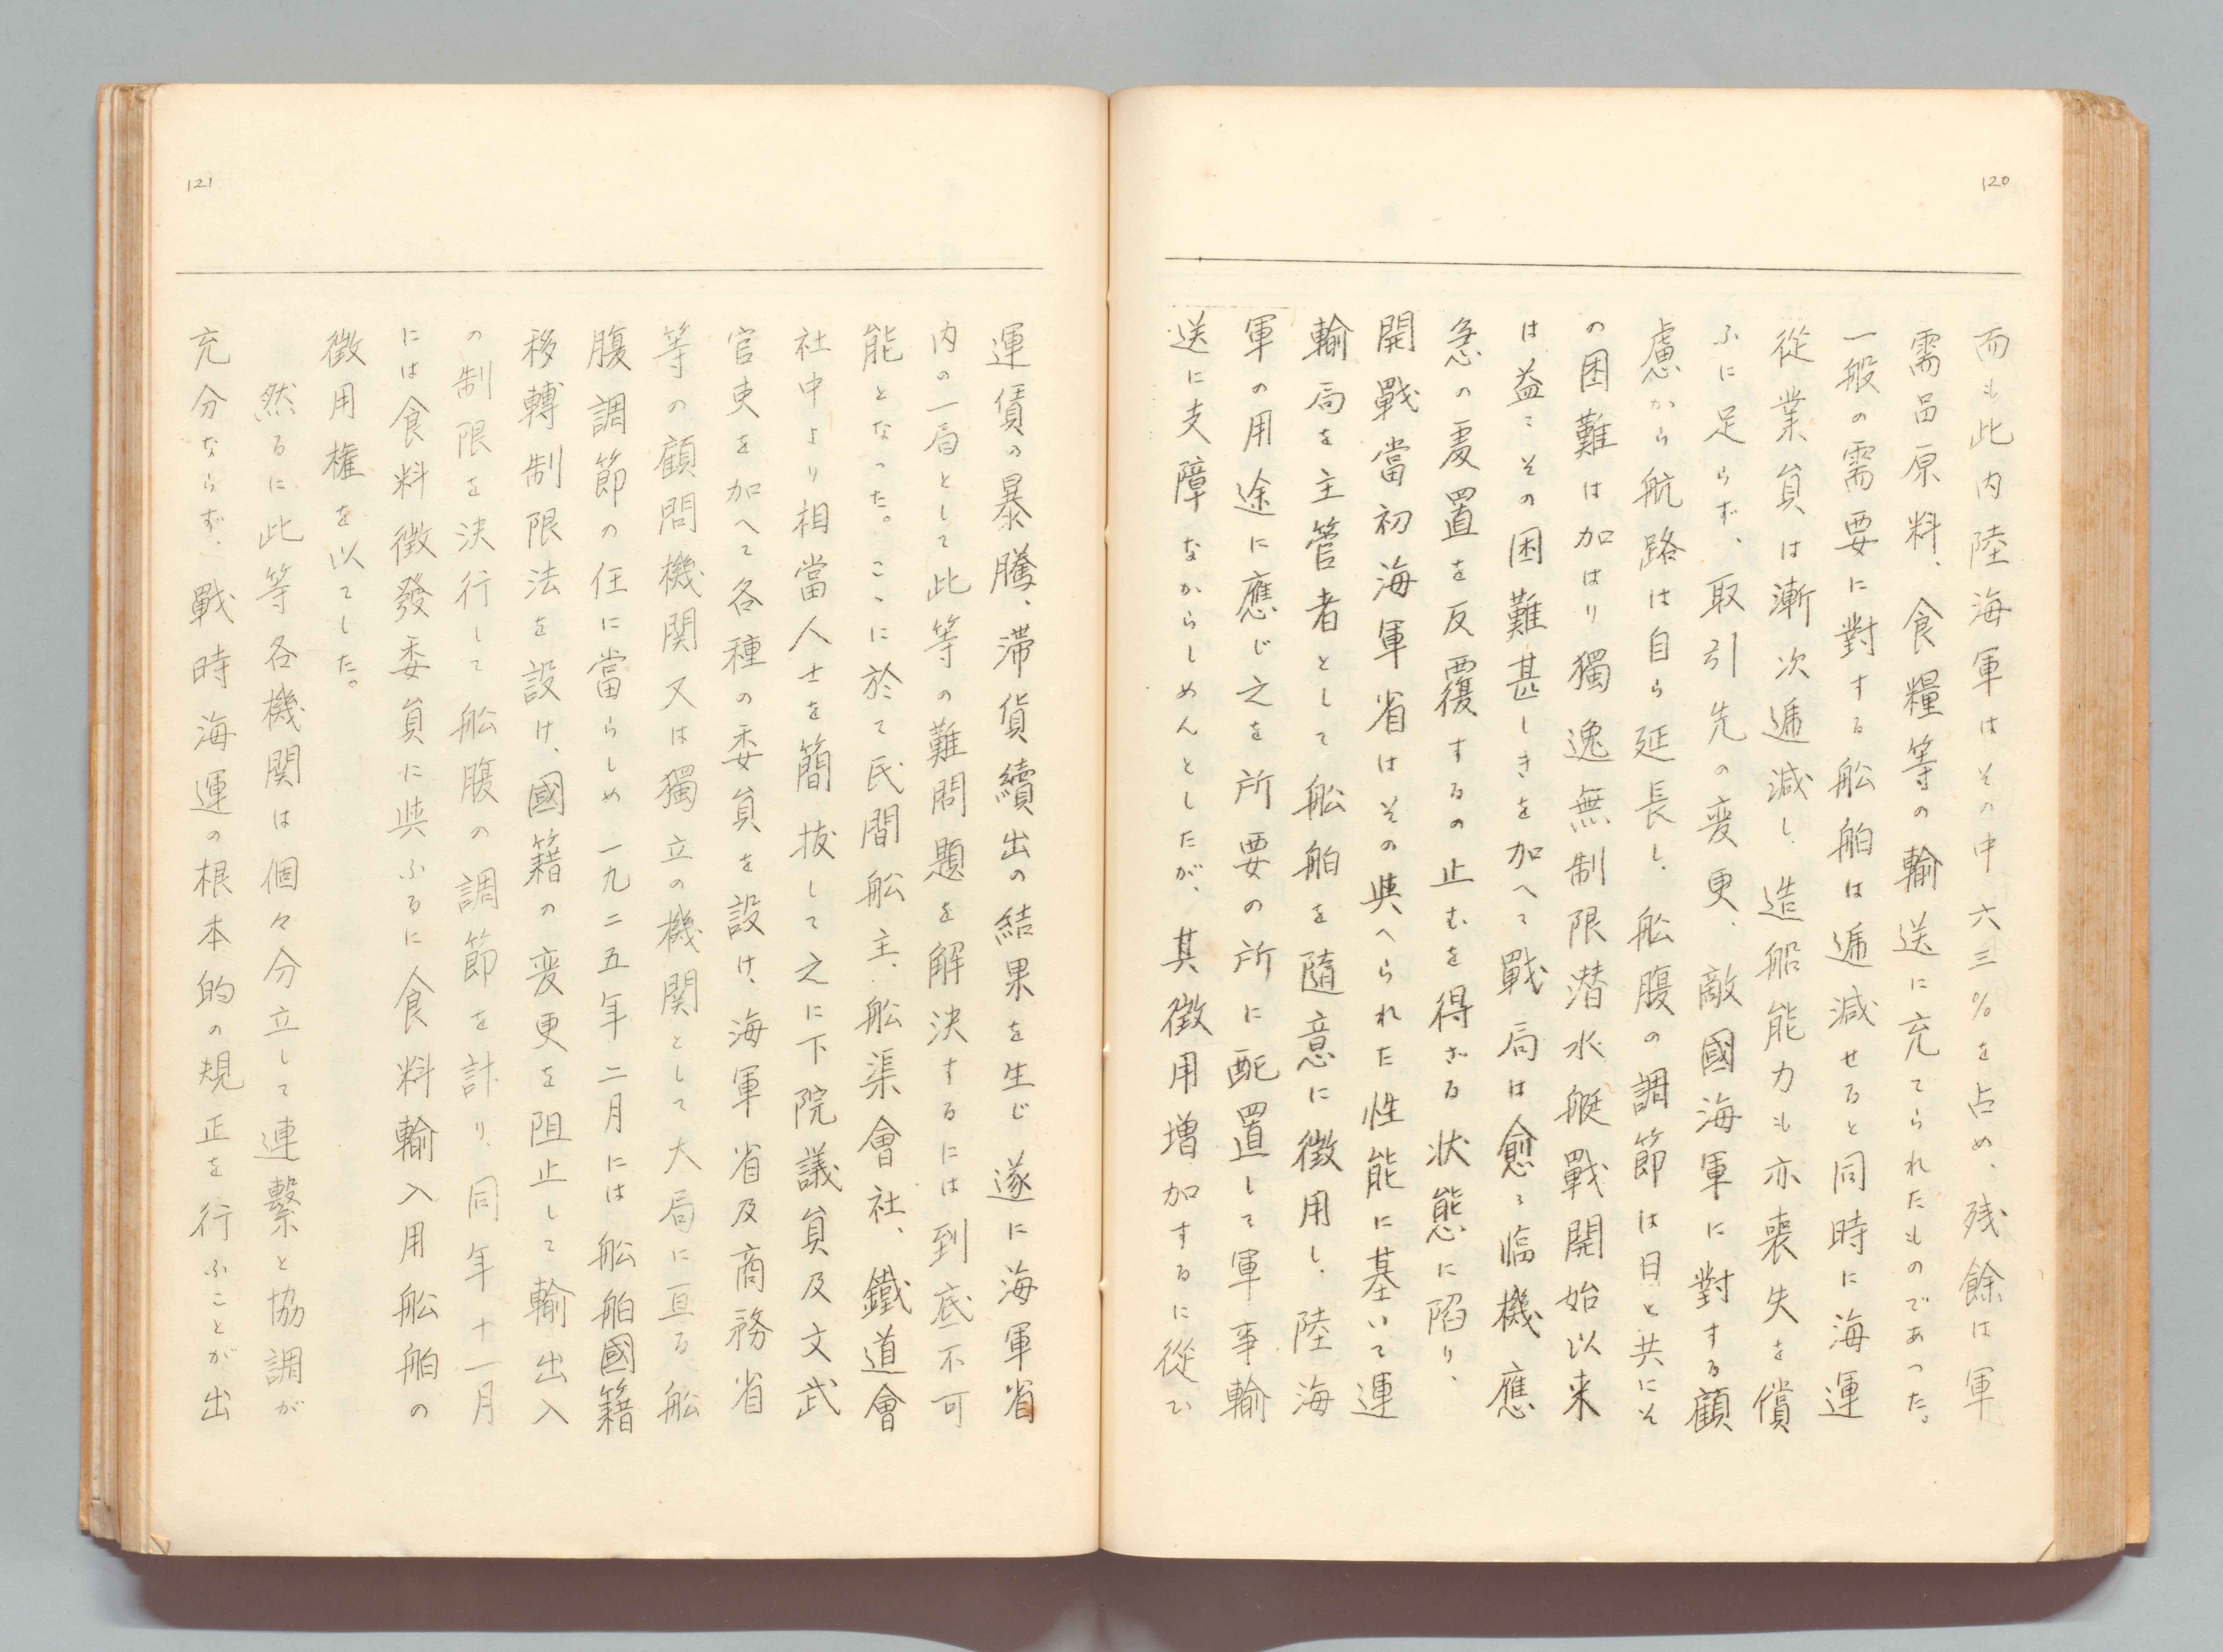 120
而も此内陸海軍はその中六三%を占め、残餘は軍
需品原料、食糧等の輸送に充てられたものであつた。
一般の需要に對する船舶は逓減せると同時に海運
從業員は漸次逓減し、造船能力も亦喪失を償
ふに足らず、取引先の変更、敵國海軍に對する顧
慮から航路は自ら延長し、船腹の調節は日と共にそ
の困難は加はり獨逸無制限潜水艇戰開始以来
は益々その困難甚しきを加へて戰局は愈々臨機應
急の處置を反覆するの止むを得ざる状態に陷り、
開戰當初海軍省はその與へられた性能に基いて運
輸局を主管者として船舶を隨意に徴用し、陸海
軍の用途に應じ之を所要の所に配置して軍事輸
送に支障なからしめんとしたが、其徴用増加するに從ひ
121
運賃の暴騰、滞貨續出の結果を生じ遂に海軍省
内の一局として此等の難問題を解決するには到底不可
能となつた。こゝに於て民間船主、船渠會社、鐵道會
社中より相當人士を簡抜して之に下院議員及文武
官吏を加へて各種の委員を設け、海軍省及商務省
等の顧問機関又は獨立の機関として大局に亘る船
腹調節の任に當らしめ一九二五年二月には船舶國籍
移轉制限法を設け、國籍の変更を阻止して輸出入
の制限を決行して船腹の調節を計り、同年十一月
には食料徴發委員に與ふるに食料輸入用船舶の
徴用権を以てした。
然るに此等各機関は個々分立して連繫と協調が
充分ならず、戰時海運の根本的の規正を行ふことが出